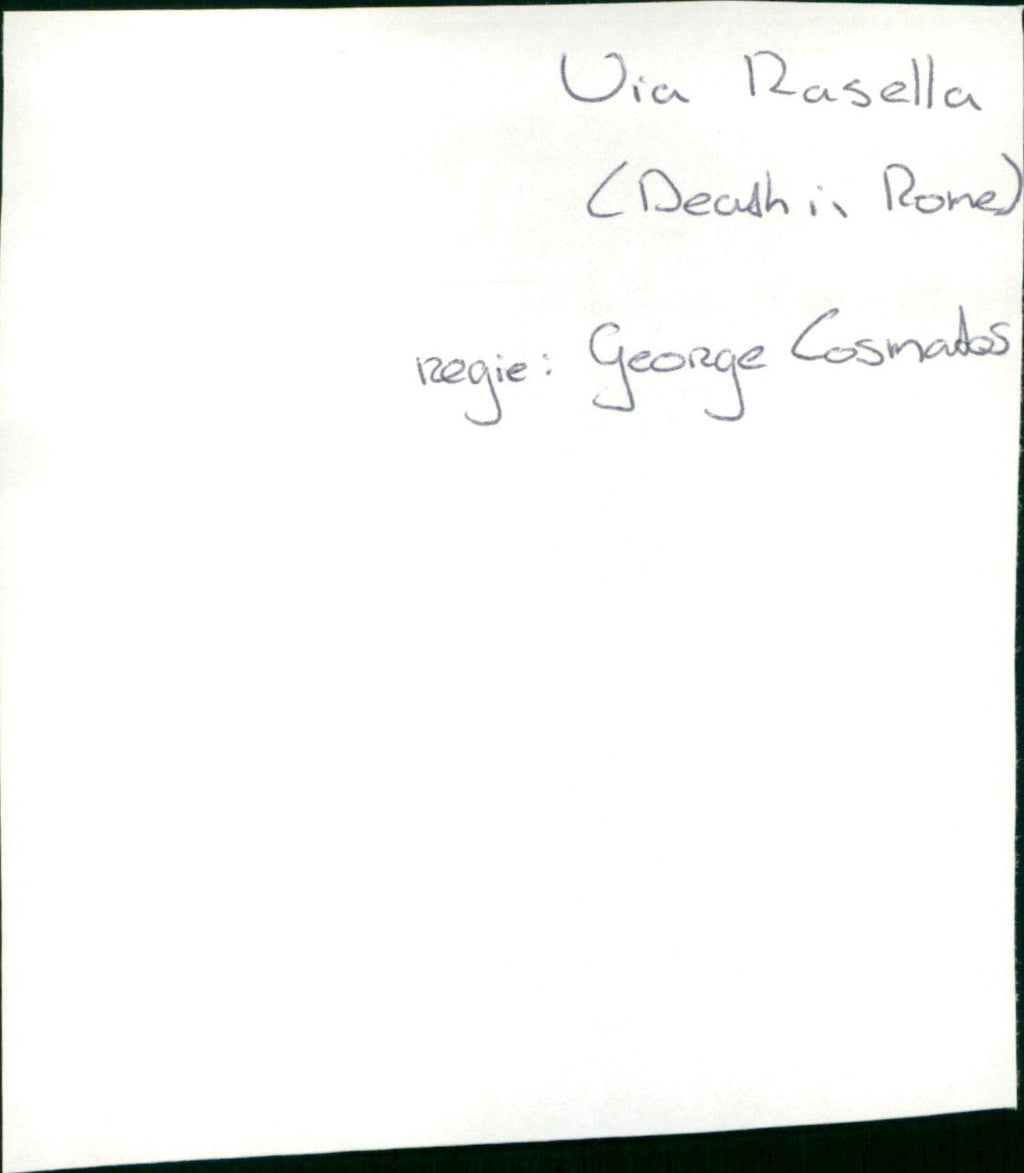 Via Rasella
(Death in Rome)
regie: George Cosmatos